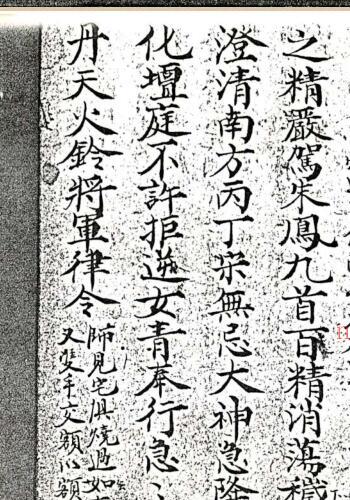 之精嚴駕朱鳳九首百精消蕩穢
澄清南方丙丁宋無忌大神急降
化壇庭不許拒逆女青奉行急〻
丹天火鈴將軍律令
師見宅俱燒過如
又雙手文額以額